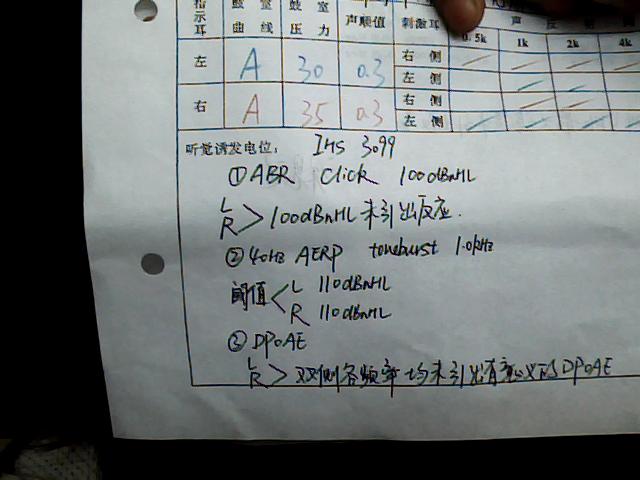 指示耳 鼓室曲线 鼓室压力 声顺值 刺激耳 声反射
0.5k 1k 2k 4k
左 A 30 0.3 右侧
左侧
右 A 35 0.3 右侧
左侧
听觉诱发电位: IHS 3099
①ABR Click 100dBnHL
L R > 100dBnHL 未引出反应.
②40Hz AERP toneburst 1.0kHz
阈值 < L 110dBnHL
R 110dBnHL
③DPOAE
L R > 双侧各频率均未引出有意义的DPOAE